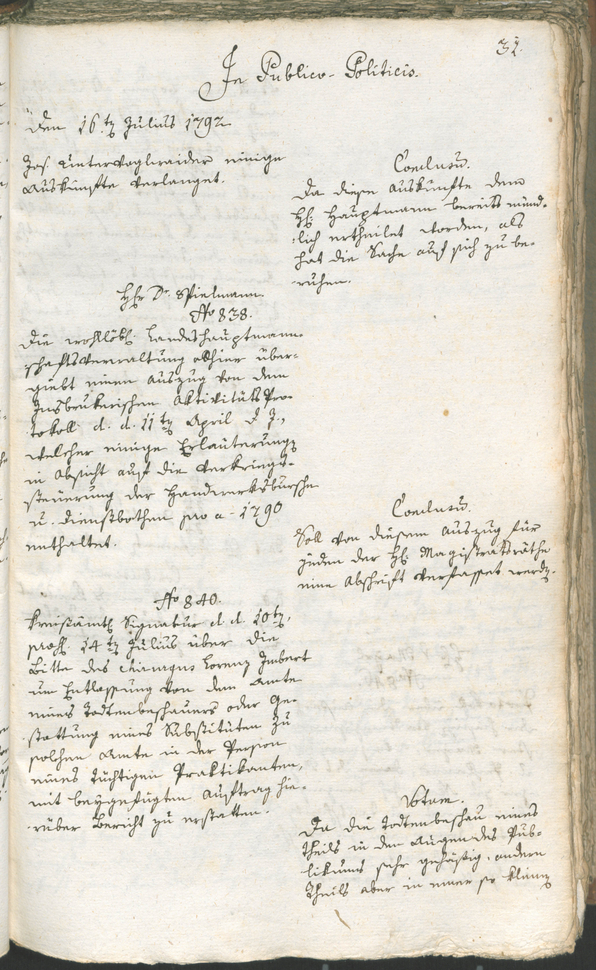 31.
In Publico-Politicis.
den 16.t. Julius 1792.
Jos. Untervoglraider einige
Auskünfte verlanget.
Conclusum.
Da diese Auskünfte dem
H. Hauptmann bereits münd-
lich ertheilet worden, als
hat die Sache auf sich zu be-
ruhen.
Hr Dr. Spielmann
No 838.
Die wohllöbl. Landeshauptmann-
schaftsverwaltung allhier über-
giebt einen Auszug von dem
Insbrukerischen Aktivitäts Pro-
tokoll d. d. 11t April d. J.,
welcher einige Erläuterung
in Absicht auf die Verkriegs-
steuerung der Handwerksbursche
u. Dienstbothen pro a. 1790
enthaltet.
Conclusum.
Soll von diesem Auszug für
jeden der H. Magistratsräthe
eine Abschrift verfasset werden.
No 840.
Kreisämtl. Signatur d. d. 10t,
praes. 14t Julius über die
Bitte des Chirurgus Lorenz Imbert
um Entlassung von dem Amte
eines Todtenbeschauers oder Ge-
stattung eines Substituten zu
solchem Amte in der Person
eines tüchtigen Praktikanten,
mit beygefügtem Auftrag hie-
rüber Bericht zu erstatten.
Votum.
Da die Todtenbeschau eines
Theils in den Augen des Pub-
likums sehr gehässig, andern
Theils aber in einer so kleinen